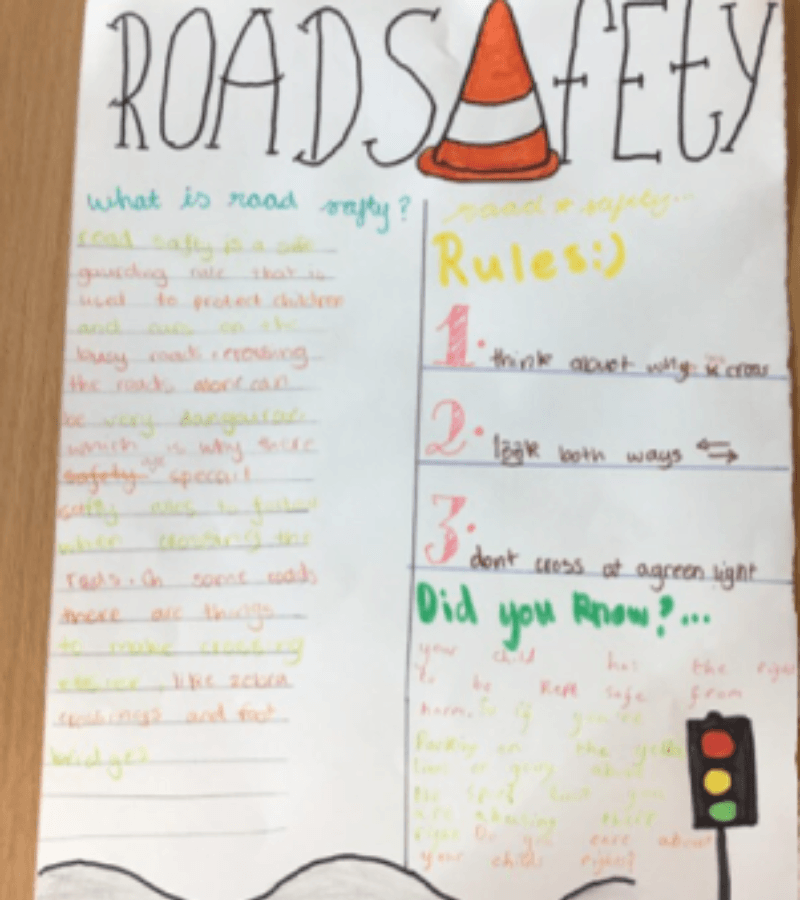 ROAD SAfEtY
what is road safty?
road safty is a safe
gaurding rule that is
used to protect children
and on the
busy roads crossing
the roads alone can
be very dangourous
which is why there
safety are speciel
safty rules to follow
when crossing the
rods. On some roads
there are things
to make crossing
easier, like zebra
crossings and foot
bridges
road safety...
Rules:)
1. think about why to cross
2. look both ways
3. dont cross at a green light
Did you know?...
your child has the right
to be kept safe from
harm. So if you're
Parking on the yellow
line or going
the speed limit you
are abusing there
right. Do you care about
your childs rights?